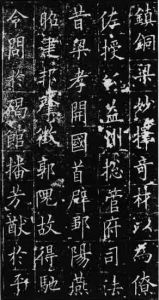 鎮銅梁妙擇奇材以為僚
佐授公益州總管府司法
昔梁孝開國首辟鄒陽燕
昭建邦肇徵郭隗故得馳
令問於碣館播芳猷於平